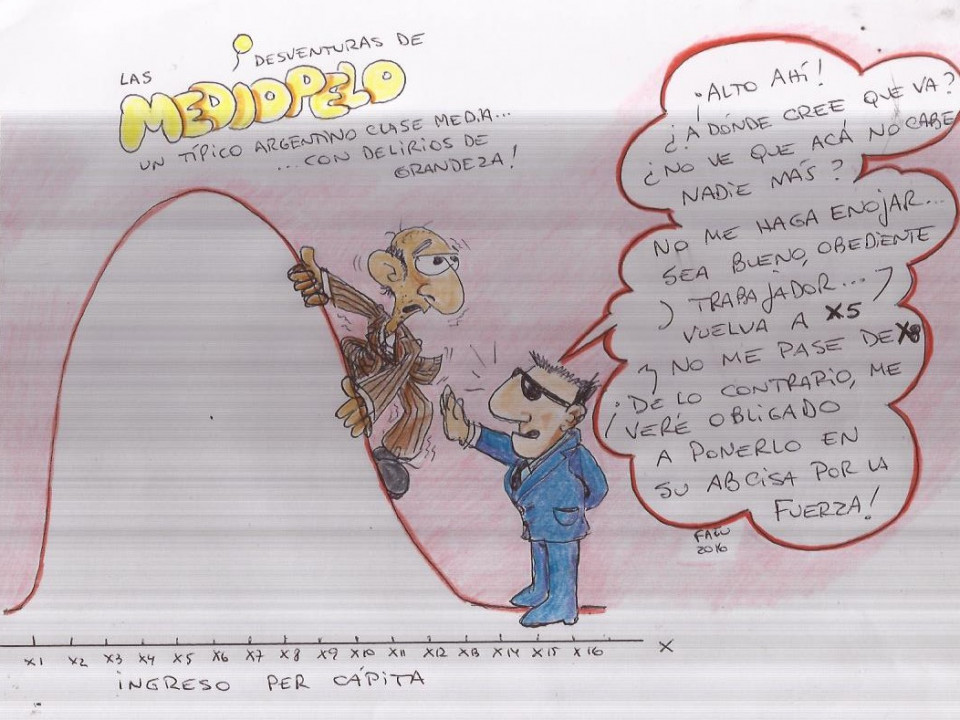 LAS DESVENTURAS DE
MEDIOPELO
UN TÍPICO ARGENTINO CLASE MEDIA...
...CON DELIRIOS DE
GRANDEZA!
¡ALTO AHÍ!
¿A DÓNDE CREE QUE VA?
¿NO VE QUE ACÁ NO CABE
NADIE MÁS?
NO ME HAGA ENOJAR...
SEA BUENO, OBEDIENTE
Y TRABAJADOR... Y
VUELVA A X5
Y NO ME PASE DE X8
¡DE LO CONTRARIO, ME
VERÉ OBLIGADO
A PONERLO EN
SU ABCISA POR LA
FUERZA!
FACU
2016
X1 X2 X3 X4 X5 X6 X7 X8 X9 X10 X11 X12 X13 X14 X15 X16 X
INGRESO PER CÁPITA